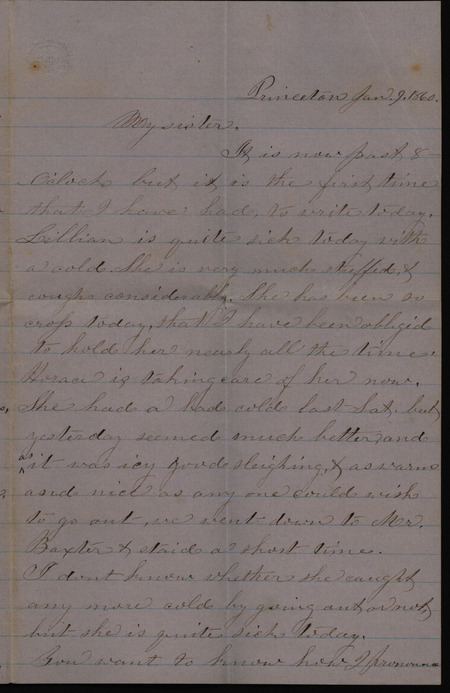 Princeton Jan. 9. 1860.
My sister.
It is now past 8
O'clock but it is the first time
that I have had, to write today.
Lillian is quite sick today with
a cold. She is very much stuffed, &
coughs considerably. She has been so
cross today, that I have been obligid
to hold her nearly all the time.
Horace is taking care of her now.
She had a bad cold last Sat. but
yesterday seemed much better and
as
it was icy good sleighing, & as warm
and nice as any one could wish
to go out, we went down to Mr.
Baxter & staid a short time.
I dont know whether she caught
any more cold by going out or not,
but she is quite sick today.
You want to know how I pronounce